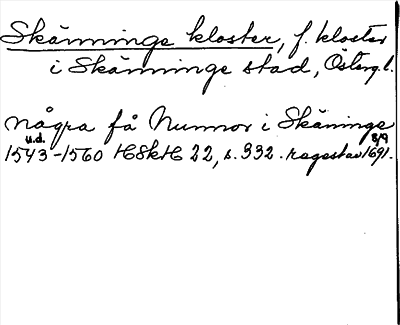 Skänninge kloster, f. kloster
i Skänninge stad, Östergl.
några få Nunnor i Skäninge
u.d. 8/9
1543-1560 HSkH 22, s. 332. regestav 1691.